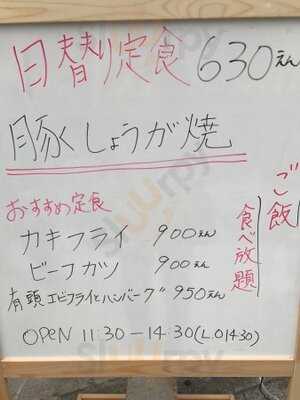 日替り定食 630えん
豚しょうが焼
おすすめ定食
カキフライ 900えん
ビーフカツ 900えん
有頭エビフライとハンバーグ 950えん
ご飯
食べ放題
OPEN 11:30-14:30(L.O14:30)